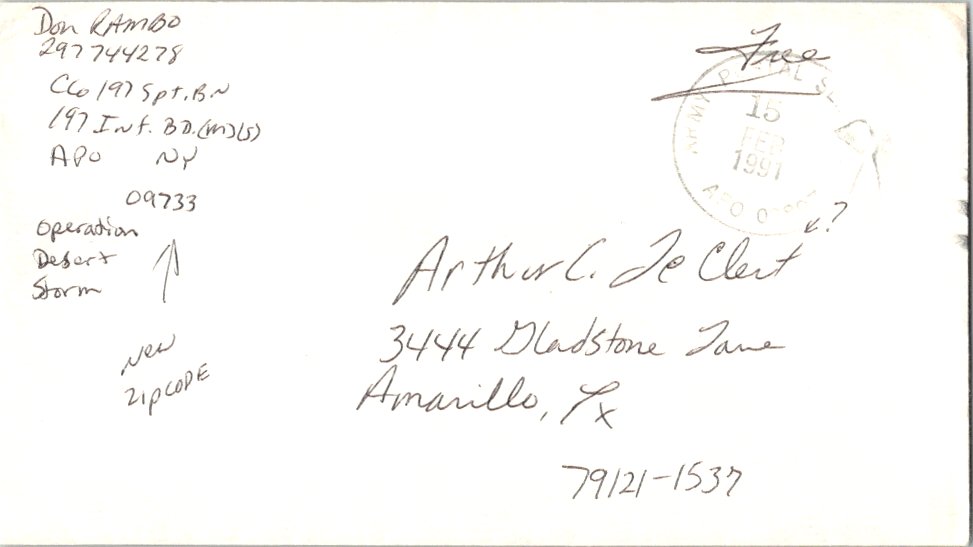 Don RAMBO
297744278
Co 197 Spt. BN
197 Inf. BD.(M)(S)
APO NY
09733
Operation
Desert
Storm
New
ZIPCODE
Free
ARMY POSTAL
15
FEB
1991
APO
?
Arthur C. Le Clert
3444 Gladstone Lane
Amarillo, Tx
79121-1537